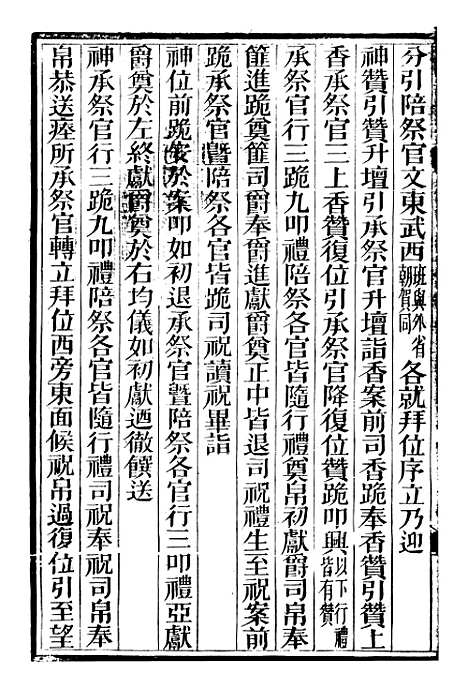 分引陪祭官文東武西班與外省朝賀同各就拜位序立乃迎
神贊引贊升壇引承祭官升壇詣香案前司香跪奉香贊引贊上
香承祭官三上香贊復位引承祭官降復位贊跪叩興以下行禮皆有贊
承祭官行三跪九叩禮陪祭各官皆隨行禮奠帛初獻爵司帛奉
篚進跪奠篚司爵奉爵進獻爵奠正中皆退司祝禮生至祝案前
跪承祭官暨陪祭各官皆跪司祝讀祝畢詣
神位前跪安於案叩如初退承祭官暨陪祭各官行三叩禮亞獻
爵奠於左終獻爵奠於右均儀如初獻迺徹饌送
神承祭官行三跪九叩禮陪祭各官皆隨行禮司祝奉祝司帛奉
帛恭送瘞所承祭官轉立拜位西旁東面候祝帛過復位引至望